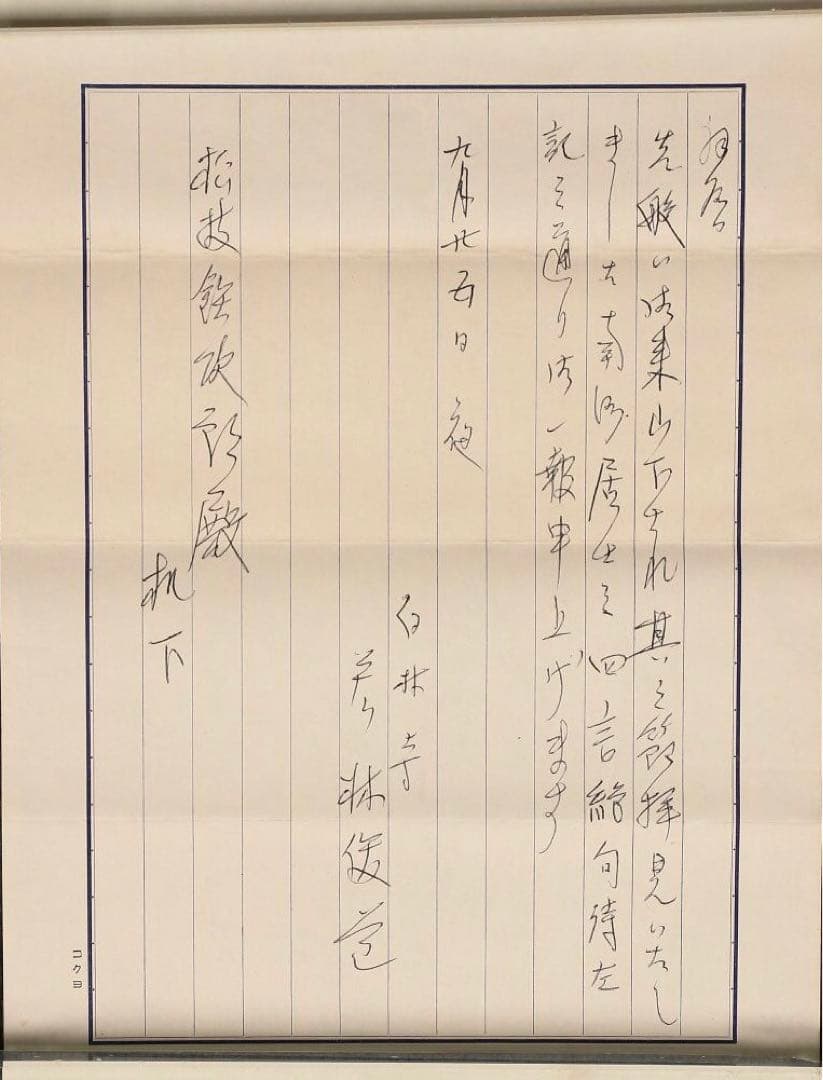 拝啓
先般ハ御来山下され其之節拝見いたし
ました南洲居士之四言絶句詩左
記之通り御一報申上げます
九月廿五日 夜
白林寺
林俊道
松枝 次郎殿
机下
コクヨ